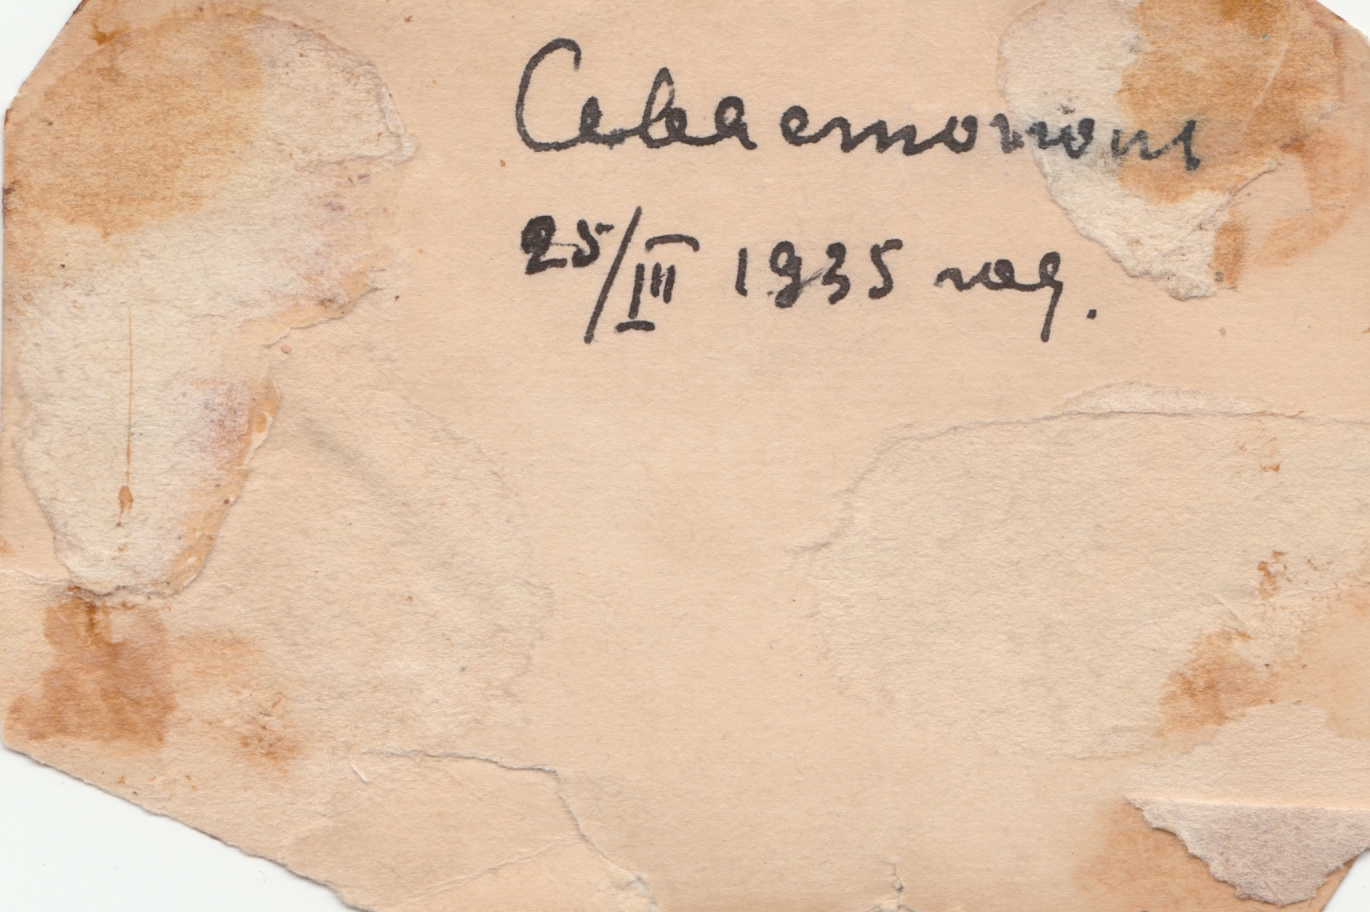 Севастополь
25/III 1935 год.